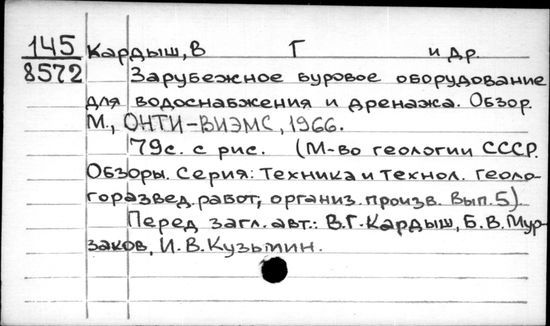 145 Кардыш, В Г и др.
8572 Зарубежное буровое оборудование
для водоснабжения и дренажа. Обзор.
М., ОНТИ-ВИЭМС, 1966.
79с. с рис. (М-во геологии СССР.
Обзоры. Серия: Техника и технол. геоло-
горазвед. работ, организ. произв. Вып. 5).
Перед загл. авт.: В.Г. Кардыш, Б.В. Мур-
заков, И.В. Кузьмин.